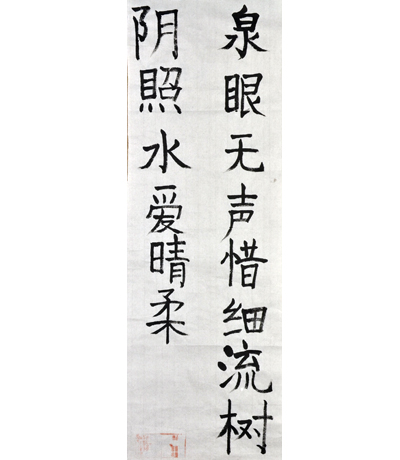 泉眼无声惜细流树
阴照水爱晴柔